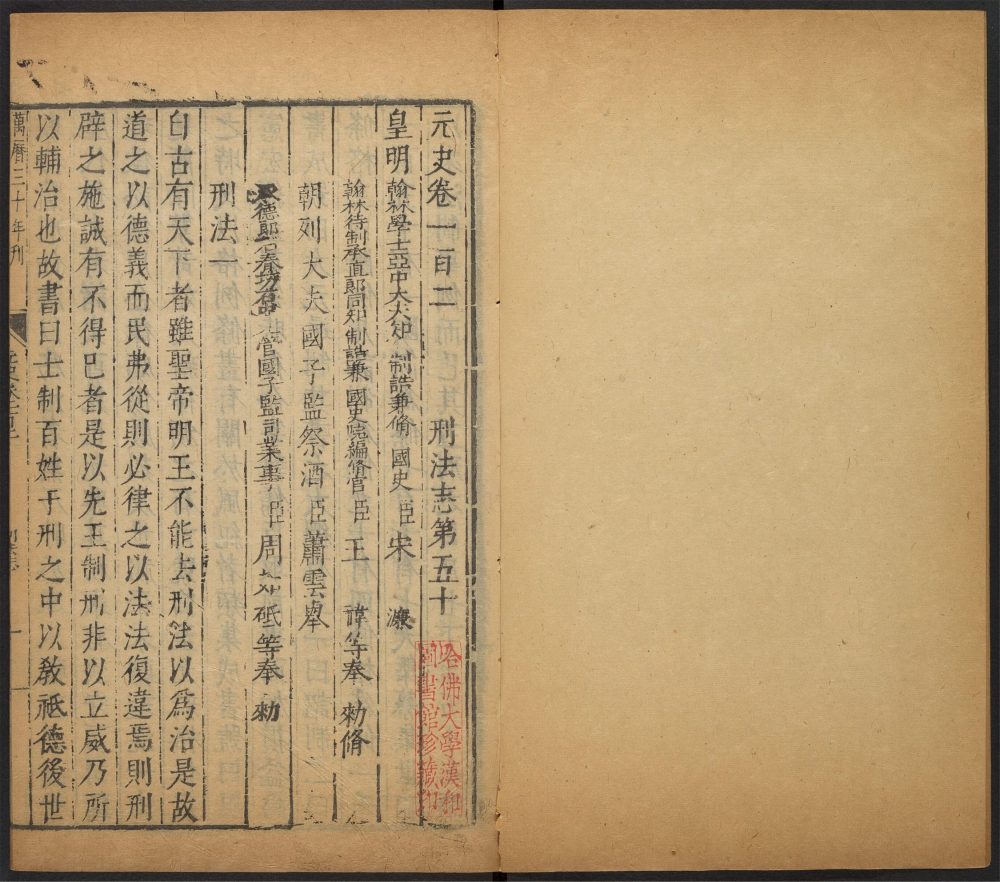 元史卷一百二　　刑法志第五十
皇明翰林學士亞中大夫知　制誥兼脩　國史　臣　宋　濂
翰林待制承直郎同知　制誥兼　國史院編脩官　臣　王　禕等奉　勑脩
朝列大夫國子監祭酒　臣　蕭雲舉
德郎右春坊　管國子監司業事　臣　周如砥等奉　勑
刑法一
自古有天下者雖聖帝明王不能去刑法以爲治是故
道之以德義而民弗從則必律之以法法復違焉則刑
辟之施誠有不得已者是以先王制刑非以立威乃所
以輔治也故書曰士制百姓于刑之中以敎祗德後世
萬曆三十年刊
一
哈佛大學漢和
圖書館珍藏印